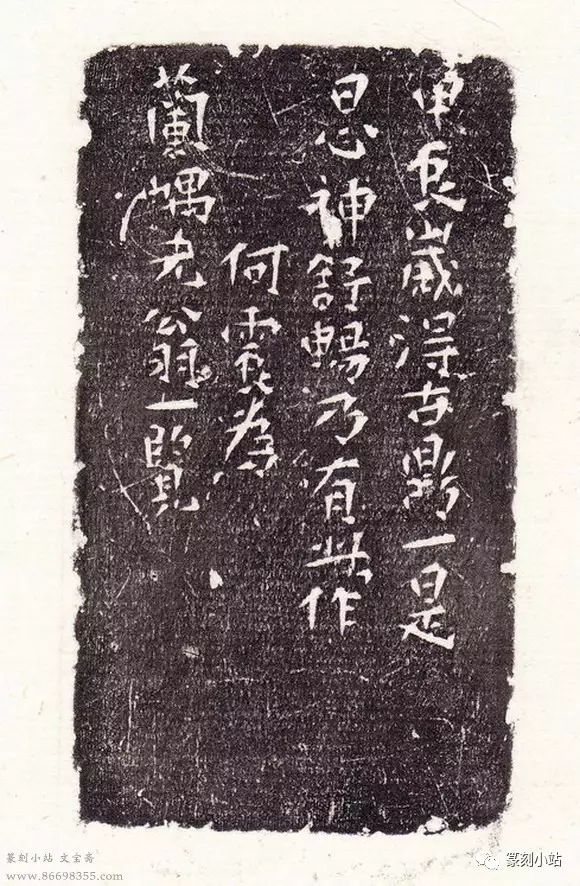 甲辰歲得古鼎一是
日心神舒暢乃有此作
何震為
蘭嵎老翁一覽
篆刻小站 文宝斋
www.86698355.com
篆刻小站